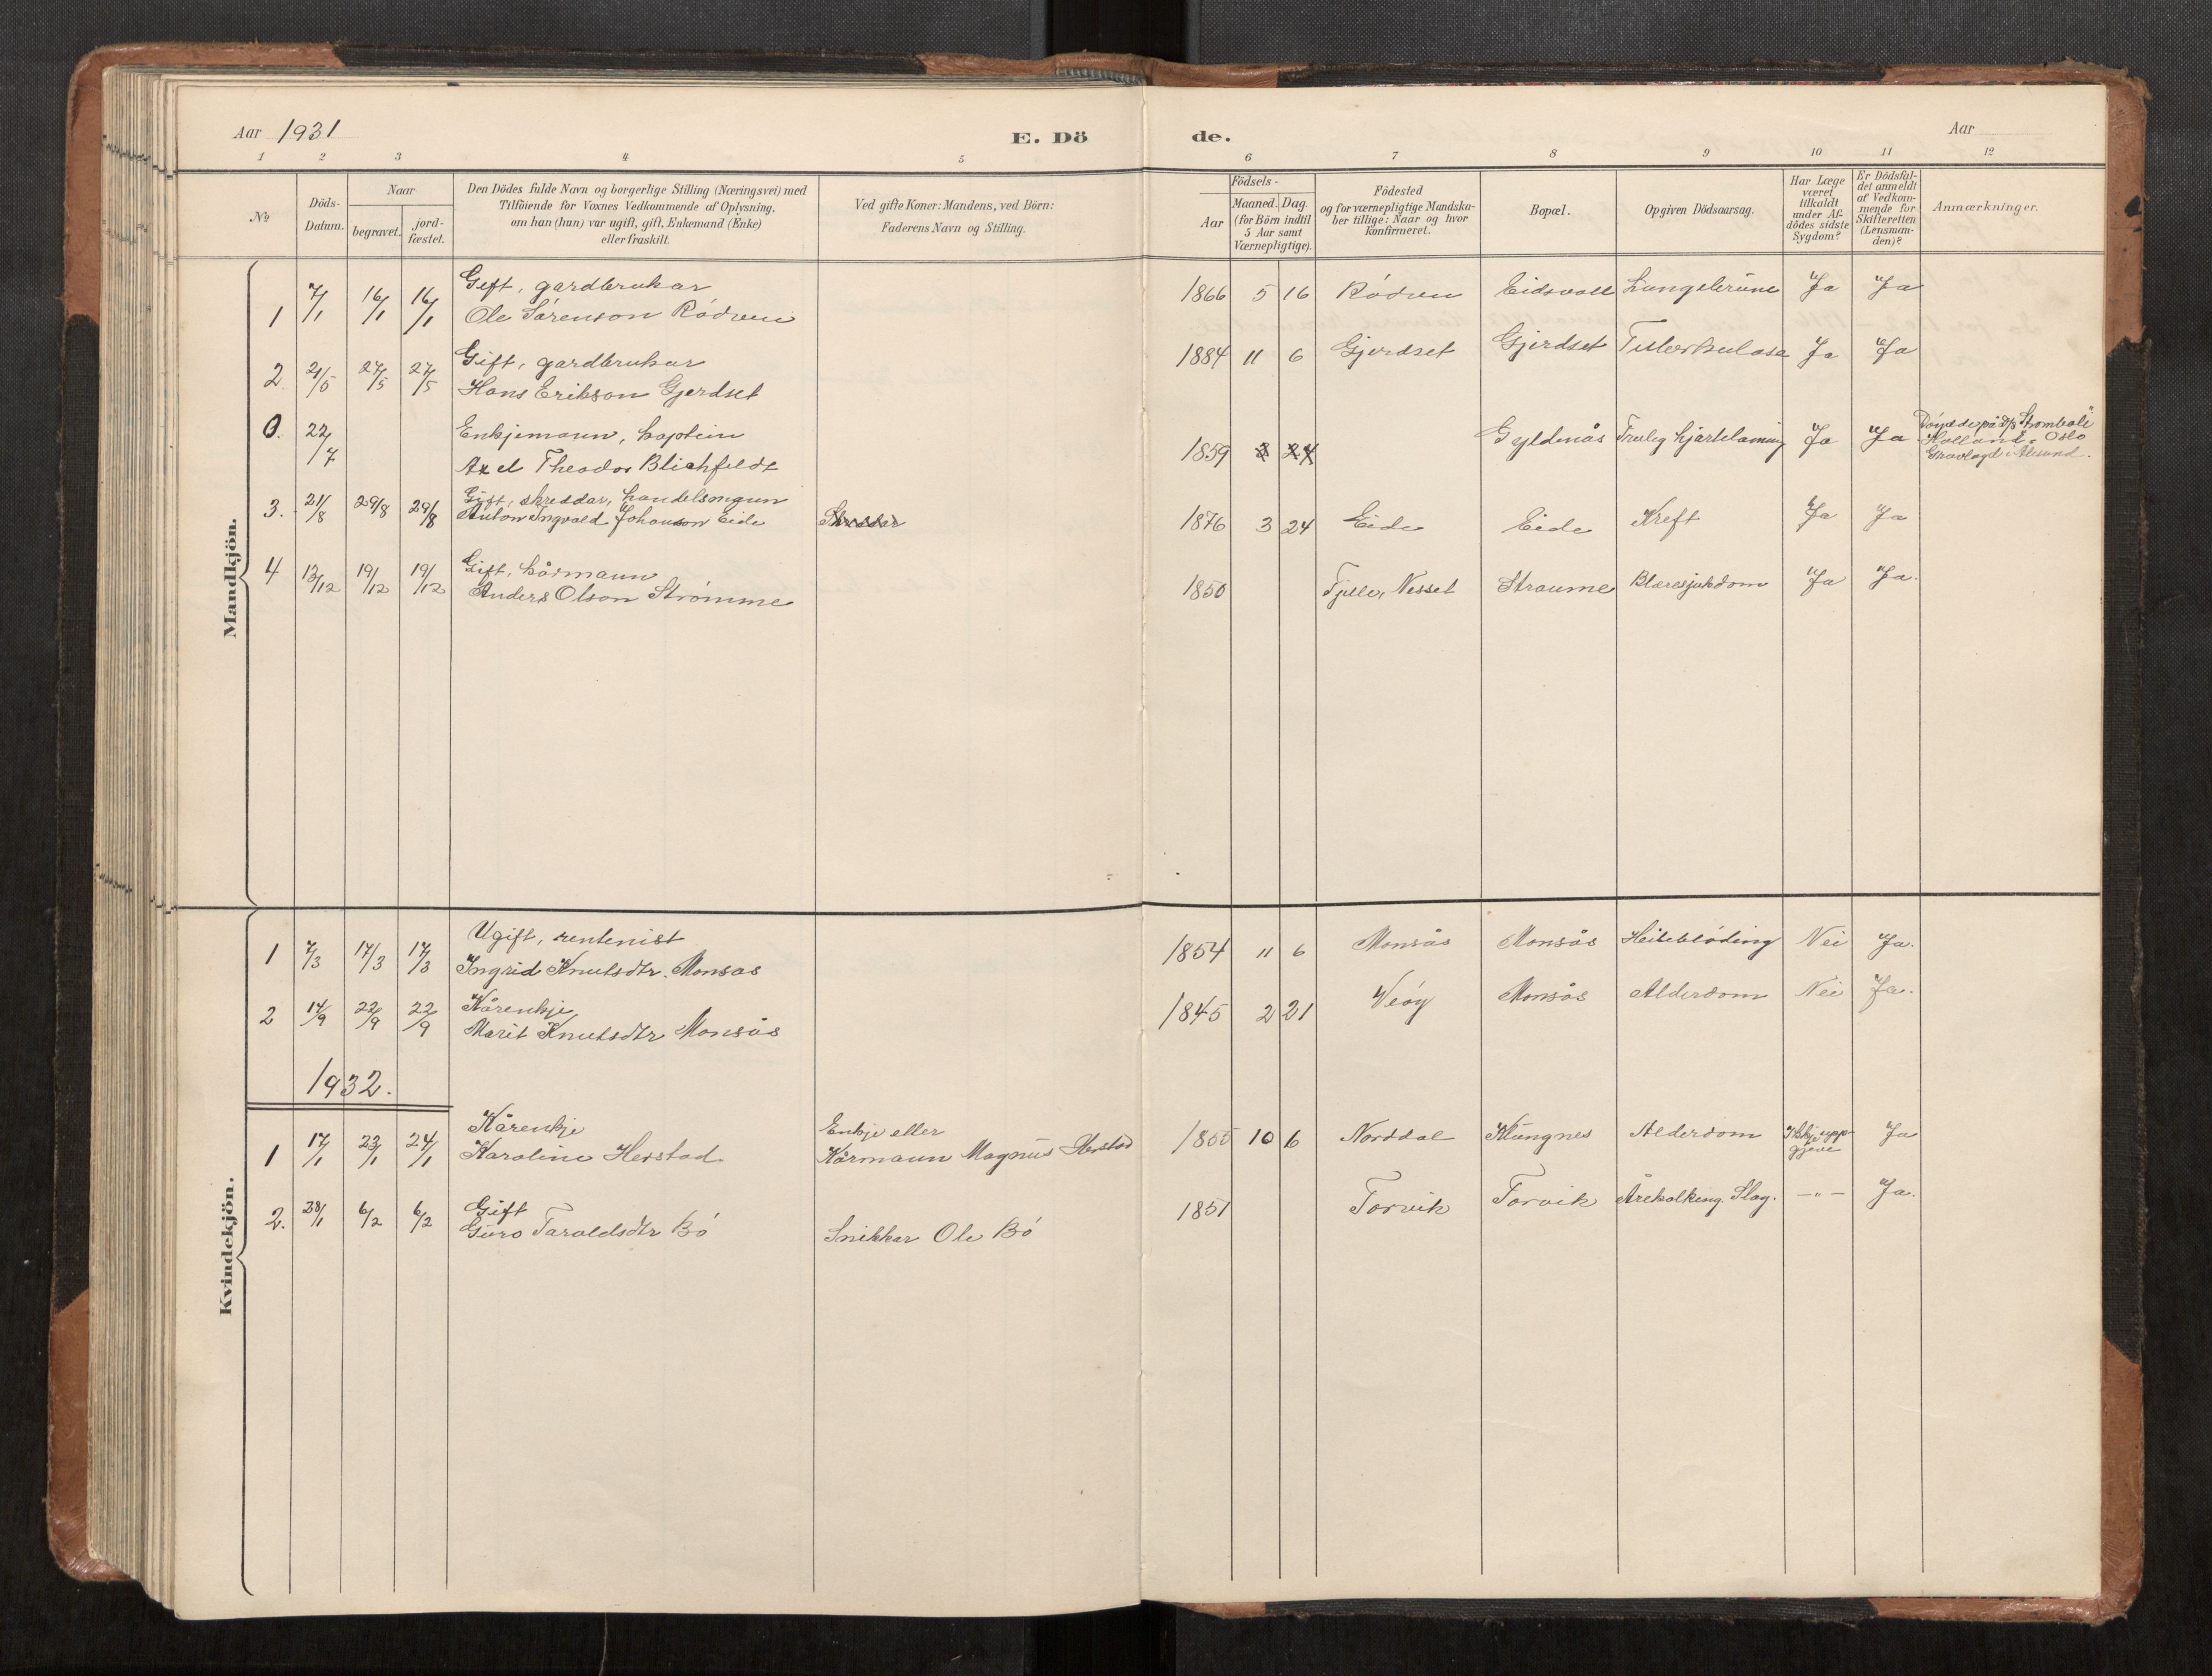 Aar 1931
E. Dö
de.
Aar
1 2 3 4 5 6 7 8 9 10 11 12
No
Döds-
Datum.
Naar
begravet.
jord-
fæstet.
Den Dödes fulde Navn og borgerlige Stilling (Næringsvei) med
Tilföiende for Voxnes Vedkommende af Oplysning,
om han (hun) var ugift, gift, Enkemand (Enke)
eller fraskilt.
Ved gifte Koner: Mandens, ved Börn:
Faderens Navn og Stilling.
Födsels-
Aar
Maaned.
Dag.
(for Börn indtil
5 Aar samt
Værnepligtige).
Födested
og for værnepligtige Mandska-
ber tillige: Naar og hvor
konfirmeret.
Bopæl.
Opgiven Dödsaarsag.
Har Læge
været
tilkaldt
under Af-
dödes sidste
Sygdom?
Er Dödsfal-
det anmeldt
af Vedkom-
mende for
Skifteretten
(Lensman-
den)?
Anmærkninger.
Mandkjön.
Gift, gardbrukar
1 7/1 16/1 16/1 Ole Sørenson Rödven 1866 5 16 Rödven Eidsvoll Lungebrune Ja Ja
Gift, gardbrukar
2. 21/5 27/5 27/5 Hans Erikson Gjerdset 1884 11 6 Gjerdset Gjerdset Tuberkulose Ja Ja
0. 22/7 Enkjemann, kaptein
Axel Theodor Blichfeldt 1859 3 24 Gyldenås Truleg hjartelaming Ja Ja
Döydde på d/s Stromboli
Holland, Oslo
Gravlagd i Ålesund.
3. 21/8 29/8 29/8 Gift, skreddar, handelsmann
Anton Ingvald Johanson Eide Skreddar 1876 3 24 Eide Eide Kreft Ja Ja
4 13/12 19/12 19/12 Gift, kårmann
Anders Olson Strömme 1850 Tjelle, Nesset Straume Blæresjukdom Ja Ja.
Kvindekjön.
Ugift, rentenist
1 7/3 17/3 17/3 Ingrid Knutsdtr. Monsås 1854 11 6 Monsås Monsås Heilebløding Nei Ja.
Kårenkje
2 14/9 22/9 22/9 Marit Knutsdtr Monsås 1845 2 21 Veöy Monsås Alderdom Nei Ja.
1932.
Kårenkje
Enkje eller
1 17/1 23/1 24/1 Karoline Herstad Kårmann Magnus Herstad 1855 10 6 Norddal Klungnes Alderdom Ikkje upp-
gjeve Ja
Gift
2. 28/1 6/2 6/2 Guro Taroldsdtr Bö Snikkar Ole Bö 1851 Torvik Torvik Årekalking. Slag. —"— Ja.